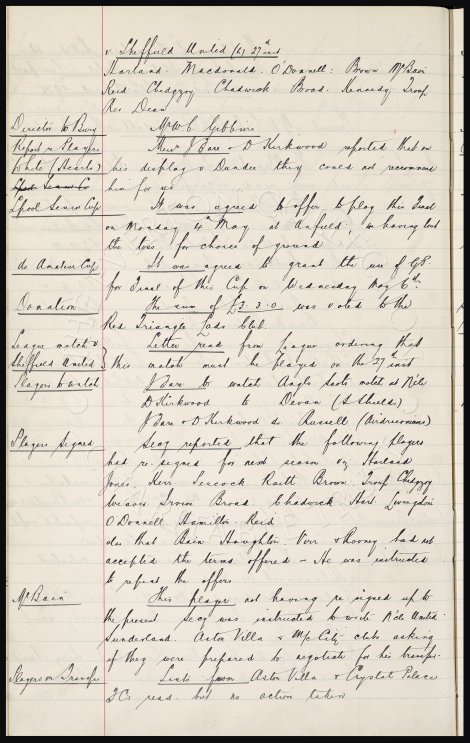 v Sheffield United (h) 27th inst
Harland. Macdonald. O'Donnell: Brown McBain
Reid Chedgzoy Chadwick. Broad. Kennedy Troup.
Res Dean
Director to Bury Mr W. C. Gibbins
Report re Players Messrs J Fare & D Kirkwood reported that on
White (Hearts) his display v Dundee they could not recommend
L'pool Senior Co him for us
L'pool Senior Cup It was agreed to offer to play this Final
on Monday 4th May at Anfield, we having lost
the toss for choice of ground
do Amateur Cup It was agreed to grant the use of G.P.
for Final of this Cup on Wednesday May 6th
Donation The sum of £3.3.0 was voted to the
Red Triangle Lads Club.
League match v Letter read from League ordering that
Sheffield United this match must be played on the 27th inst
Players to watch J Fare to watch Anglo Scots match at N'cle
D Kirkwood to Devan (S Shields)
J Fare & D Kirkwood do Russell (Airdrieonians)
Players Signed Secy reported that the following players
had re-signed for next season viz Harland
Jones. Kerr Peacock Raitt Brown. Troup Chedgzoy
Weaver Irvine Broad. Chadwick Hart Livingstone
O'Donnell Hamilton. Reid
do that Bain Houghton Virr & Rooney had not
accepted the terms offered - He was instructed
to repeat the offers
McBain This player not having re-signed up to
the present Secy was instructed to write N'cle United
Sunderland. Aston Villa & M/c City clubs asking
if they were prepared to negotiate for his transfer.
Players on Transfer Lists from Aston Villa & Crystal Palace
F.Cs read. but no action taken